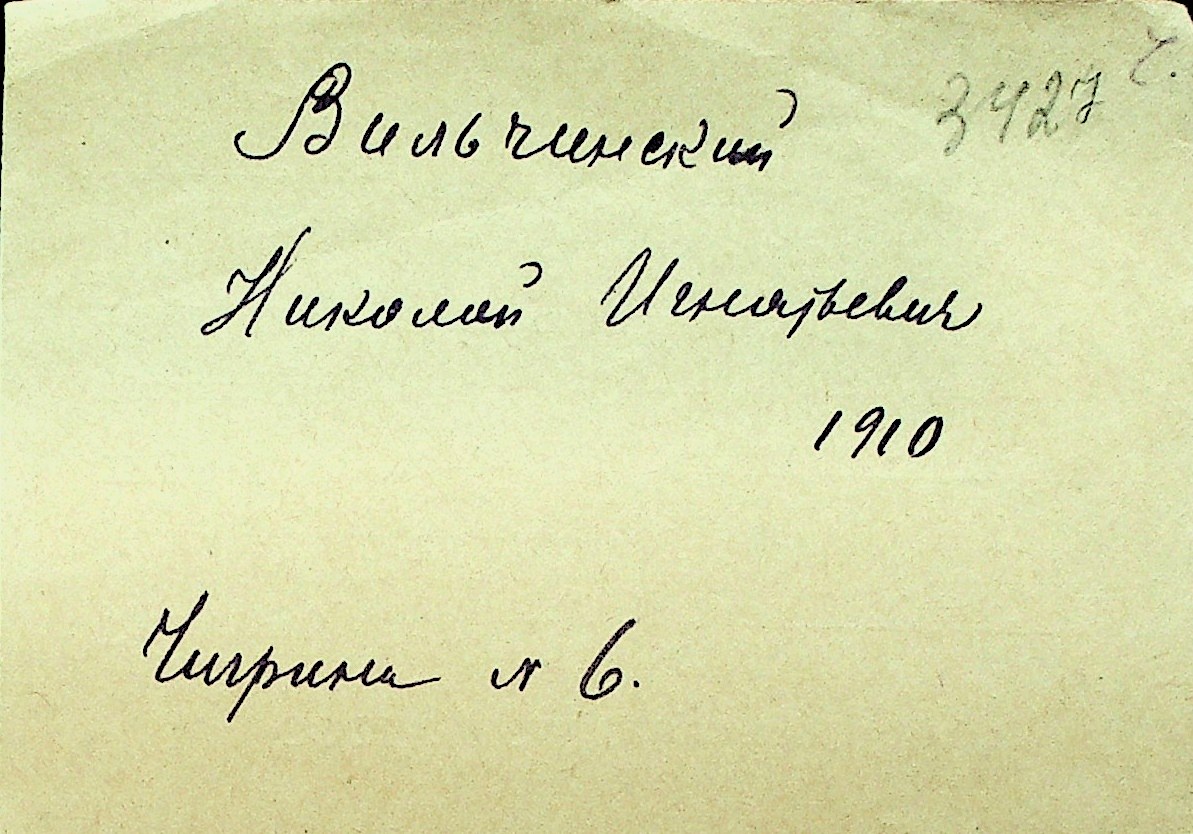 3427 с.
Вильчинский
Николай Игнатьевич
1910
Чигрина № 6.